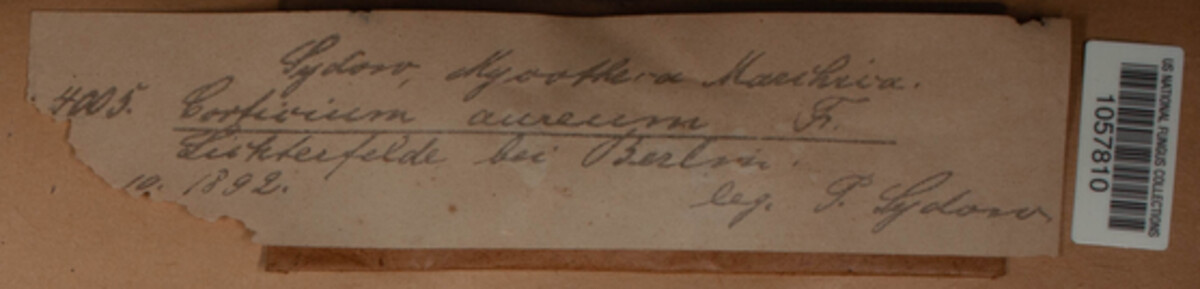 Sydow, Mycotheca Marchica.
4005. Corticium aureum Fr.
Lichterfelde bei Berlin.
10. 1892.
leg. P. Sydow
US NATIONAL FUNGUS COLLECTIONS
1057810